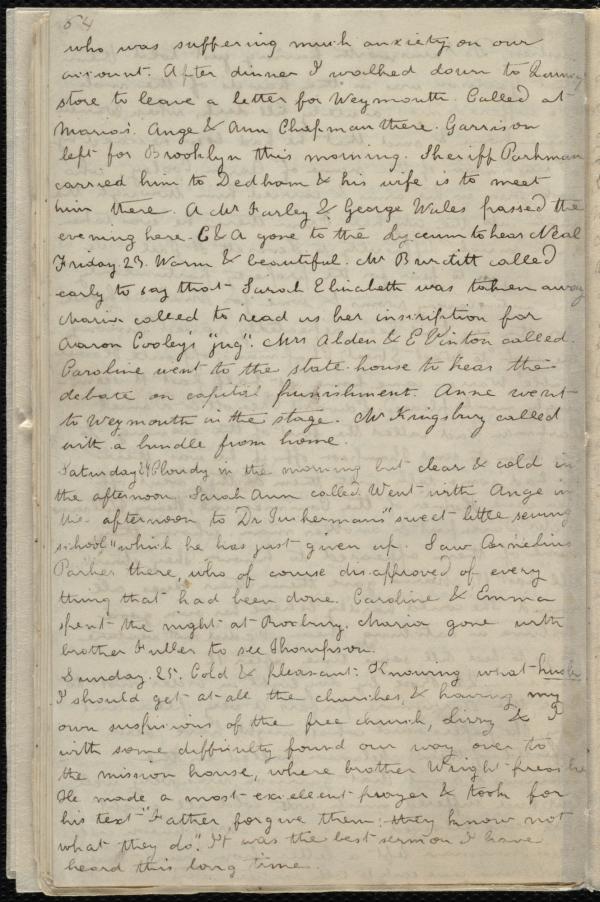 54
who was suffering much anxiety on our
account. After dinner I walked down to
store to leave a letter for Weymouth. Called at
Maria's. Ange & Ann Chapman there. Garrison
left for Brooklyn this morning. Sheriff Parkman
carried him to Dedham & his wife is to meet
him there. A Mr Farley & George Wales passed the
evening here. C & A gone to the Lyceum to hear Neal
Friday. 23. Warm & beautiful. Mr Burditt called
early to say that Sarah Elizabeth was taken away
Maria called to read us her inscription for
Aaron Cooley's "jug". Mrs Alden & E Vinton called.
Caroline went to the state-house to hear the
debate on capital punishment. Anne went
to Weymouth in the stage. Mr Kingsbury called
with a bundle from home.
Saturday 24 Cloudy in the morning but clear & cold in
the afternoon. Sarah Ann called. Went with Ange in
the afternoon to Dr Tuckerman's "sweet little sewing
school" which he has just given up. Saw Cornelius
Parker there, who of course disapproved of every
thing that had been done. Caroline & Emma
spent the night at Roxbury. Maria gone with
brother Fuller to see Thompson.
Sunday. 25. Cold & pleasant. Knowing what husks
I should get at all the churches, & having my
own suspicions of the free church, & I
with some difficulty found our way over to
the mission house, where brother Wright preaches
He made a most excellent prayer & took for
his text "Father, forgive them: they know not
what they do". It was the best sermon I have
heard this long time.